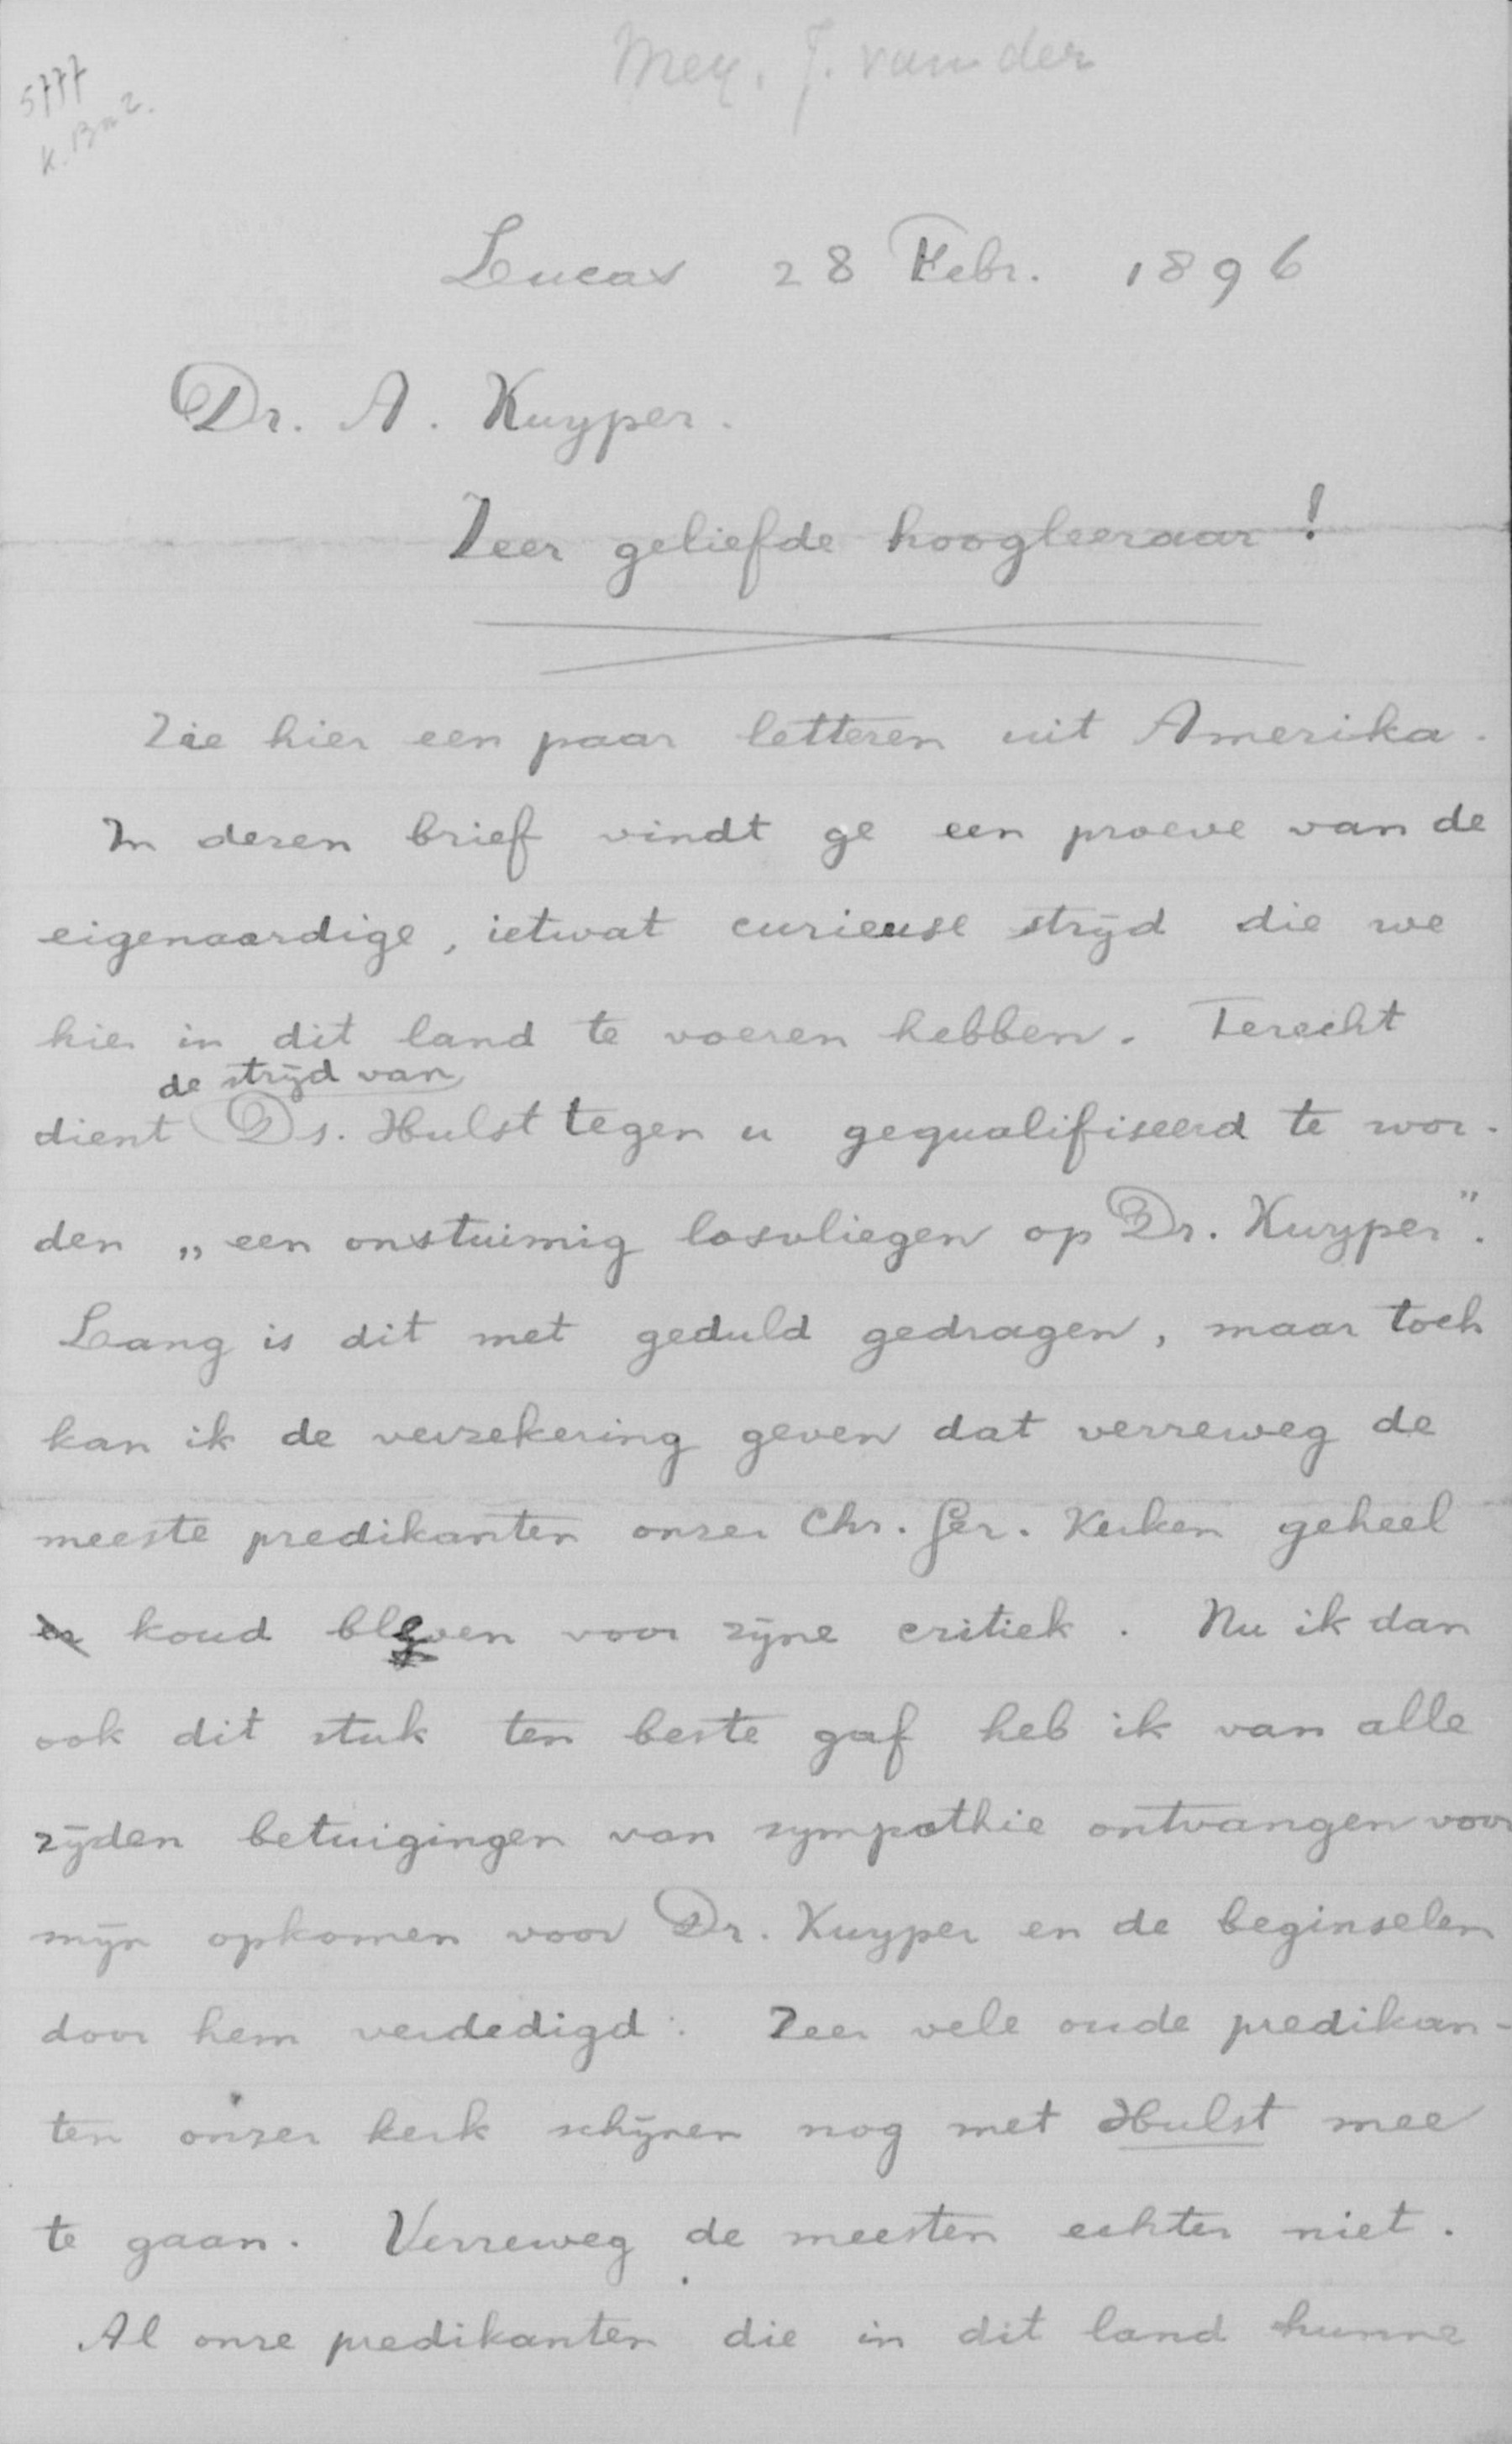 Mey. J. van der
5777
K. Bn 2.
Lucas 28 Febr. 1896
Dr. A. Kuyper.
Zeer geliefde hoogleeraar!
Zie hier een paar letteren uit Amerika.
In dezen brief vindt ge een proeve van de
eigenaardige, ietwat curieuse strijd die we
hier in dit land te voeren hebben. Terecht
de strijd van
dient Ds. Hulst tegen u gequalifiseerd te wor-
den „een onstuimig losvliegen op Dr. Kuyper".
Lang is dit met geduld gedragen, maar toch
kan ik de verzekering geven dat verreweg de
meeste predikanten onzer Chr. Ger. Kerken geheel
en koud bleven voor zijne critiek. Nu ik dan
ook dit stuk ten beste gaf heb ik van alle
zijden betuigingen van sympathie ontvangen voor
mijn opkomen voor Dr. Kuyper en de beginselen
door hem verdedigd. Zeer vele oude predikan-
ten onzer kerk schijnen nog met Hulst mee
te gaan. Verreweg de meesten echter niet.
Al onze predikanten die in dit land hunne